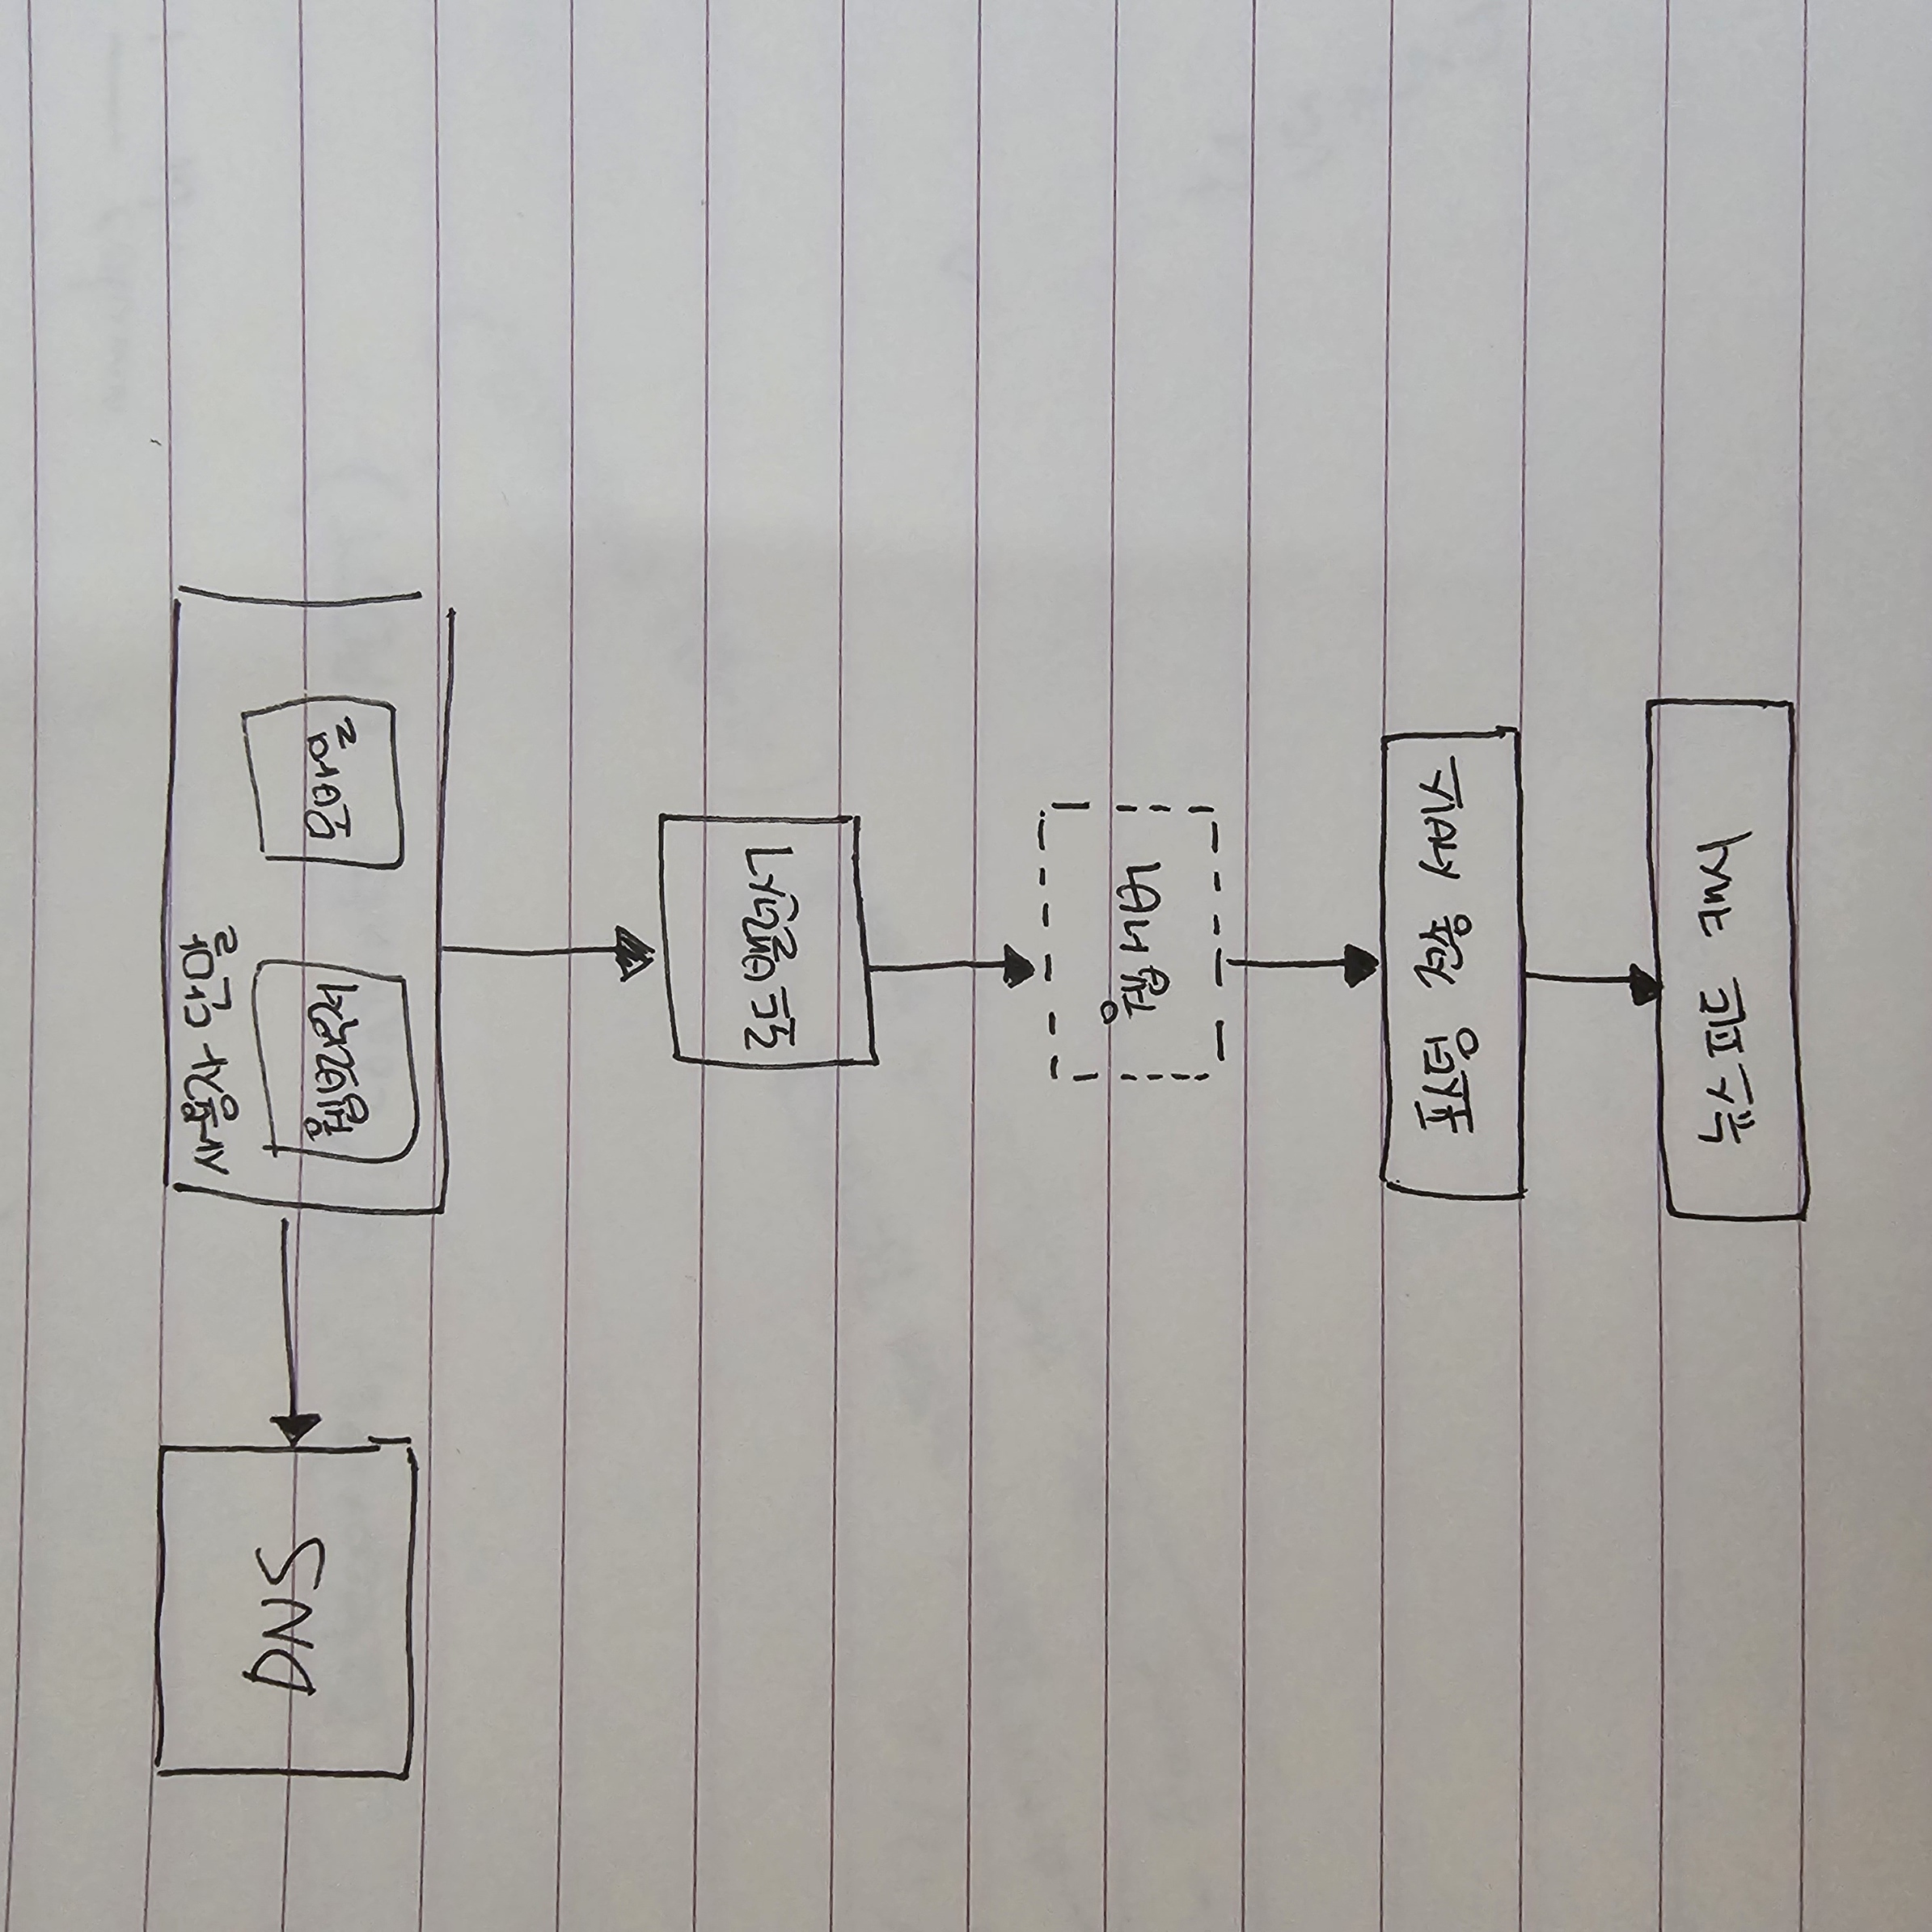 DNS
사용자 단말
웹브라우저
모바일
로드밸런서
웹서버
포스팅 전송 서비스
뉴스피드 캐시